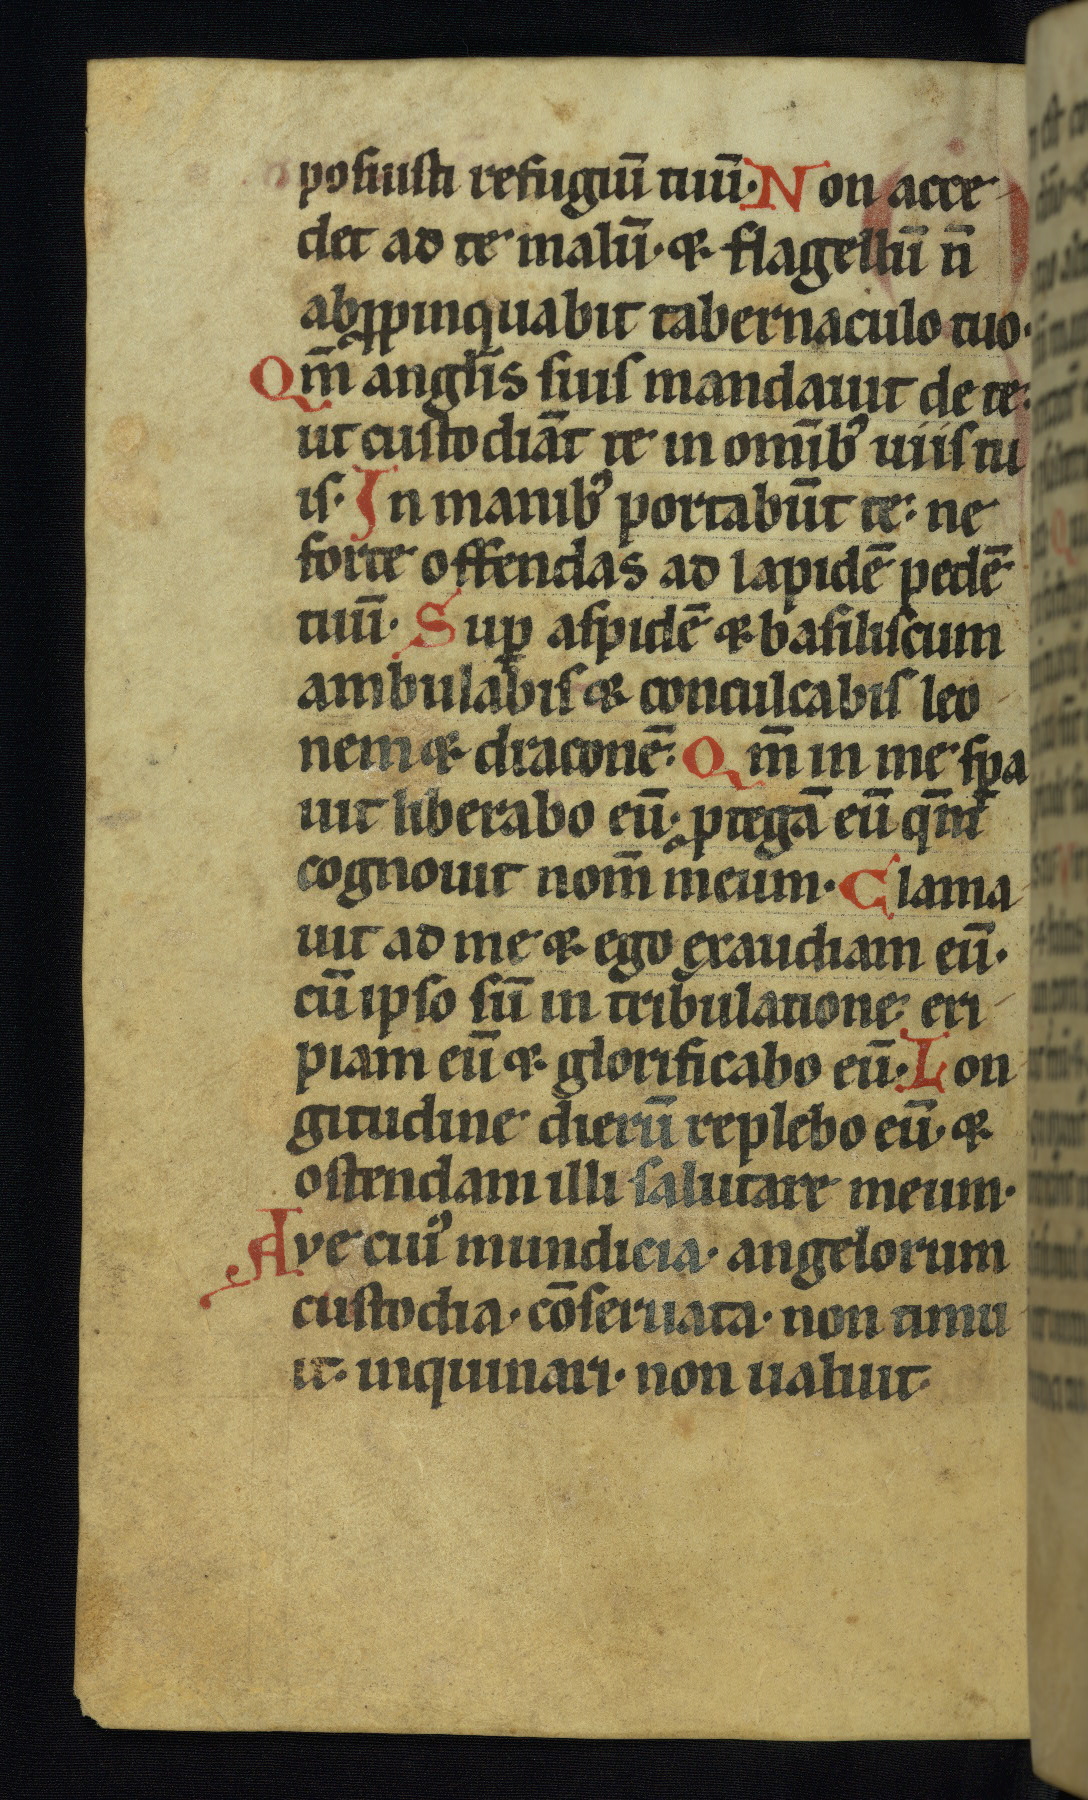 posuisti refugiū tuū· Non acce
det ad te malū· ⁊ flagellū n̄
abꝓpinquabit tabernaculo tuo·
Qm̄ anglīs suis mandauit de te:
ut custodiāt te in omībꝰ uiis tu
is· In manibꝰ portabūt te: ne
forte offendas ad lapidē pedē
tuū· Suꝑ aspidē ⁊ basiliscum
ambulabis ⁊ conculcabis leo
nem ⁊ draconē· Qm̄ in me spa
uit liberabo eū· ꝓtegā eū qm̄
cognouit nom̄ meum· Clama
uit ad me ⁊ ego exaudiam eū·
cū ipso sū in tribulatione eri
piam eū ⁊ glorificabo eū· Lon
gitudine dierū replebo eū· ⁊
ostendam illi salutare meum·
Ave cuiꝰ mundicia· angelorum
custodia· cōseruata· non timu
it· inquinari· non ualuit·